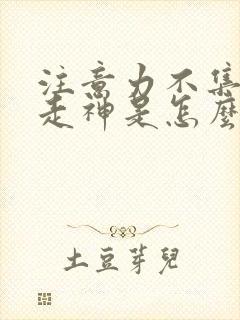 注意力不集
走神是怎麼
土豆芽兒